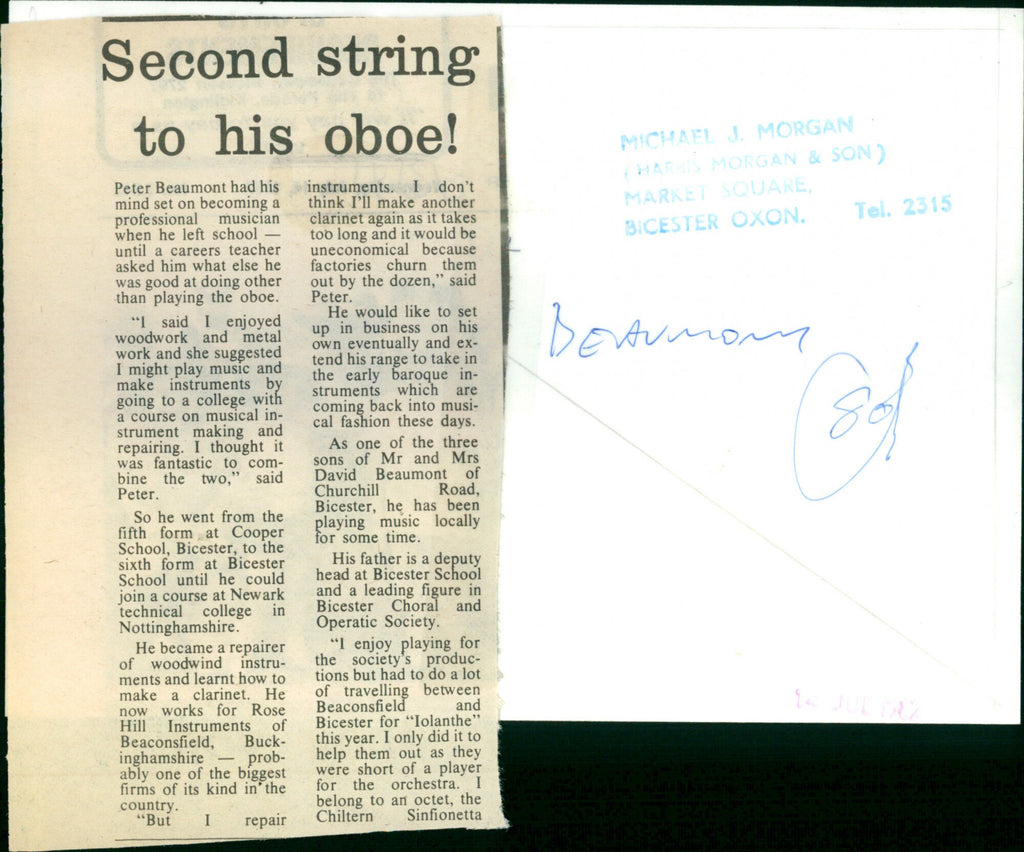 Second string
to his oboe!
Peter Beaumont had his
mind set on becoming a
professional musician
when he left school —
until a careers teacher
asked him what else he
was good at doing other
than playing the oboe.
"I said I enjoyed
woodwork and metal
work and she suggested
I might play music and
make instruments by
going to a college with
a course on musical in-
strument making and
repairing. I thought it
was fantastic to com-
bine the two," said
Peter.
So he went from the
fifth form at Cooper
School, Bicester, to the
sixth form at Bicester
School until he could
join a course at Newark
technical college in
Nottinghamshire.
He became a repairer
of woodwind instru-
ments and learnt how to
make a clarinet. He
now works for Rose
Hill Instruments of
Beaconsfield, Buck-
inghamshire — prob-
ably one of the biggest
firms of its kind in the
country.
"But I repair
instruments. I don't
think I'll make another
clarinet again as it takes
too long and it would be
uneconomical because
factories churn them
out by the dozen," said
Peter.
He would like to set
up in business on his
own eventually and ex-
tend his range to take in
the early baroque in-
struments which are
coming back into musi-
cal fashion these days.
As one of the three
sons of Mr and Mrs
David Beaumont of
Churchill Road,
Bicester, he has been
playing music locally
for some time.
His father is a deputy
head at Bicester School
and a leading figure in
Bicester Choral and
Operatic Society.
"I enjoy playing for
the society's produc-
tions but had to do a lot
of travelling between
Beaconsfield and
Bicester for "Iolanthe"
this year. I only did it to
help them out as they
were short of a player
for the orchestra. I
belong to an octet, the
Chiltern Sinfionetta
MICHAEL J. MORGAN
(HARRIS MORGAN & SON)
MARKET SQUARE,
BICESTER OXON. Tel. 2315
BEAUMONT
JUL